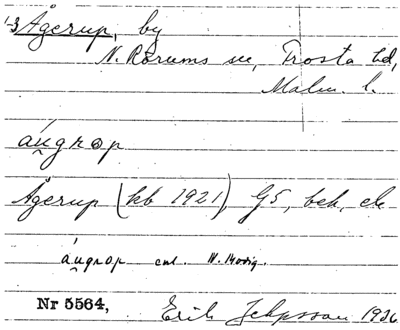 1-3 Ågerup, by
N. Rörums sn, Frosta hd,
Malm. l.
áu̯grop
Ågerup (kb 1921), GS, beb, el.
áu̯grop enl. N. Modig.
Nr 5564, Erik Jeppsson 1926